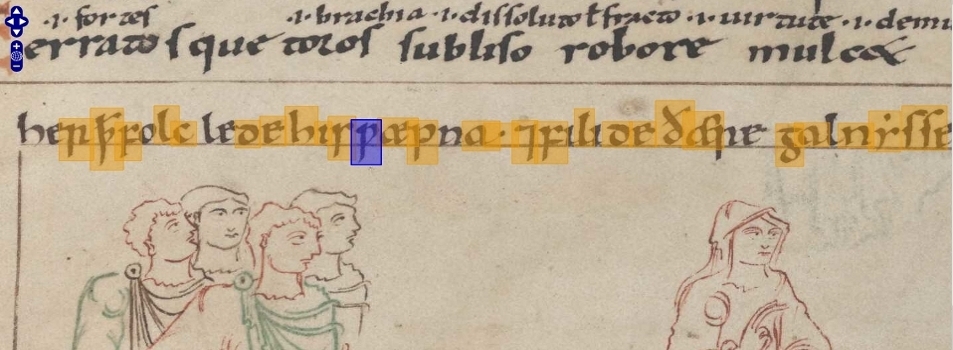 .i. fortes .i. brachia .i. dissoluto ł fracto .i. uirtute .i. demu
erratosque toros subliso robore mulcet
her ꝥ folc lede hir ƿæpna · ⁊ filide ðære galnẏsse